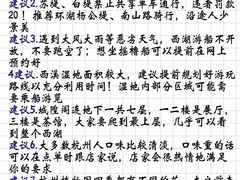 建议2.苏堤、白堤禁止共享单车通行，违者罚款
20！推荐环湖杨公堤、南山路骑行，沿途人少
景美
建议3.遇到大风大雨等恶劣天气，西湖游船不开
放，不要跑空了；想坐摇橹船可以提前在网上
预约好
4建议.西溪湿地面积较大，建议提前规划好游玩
路线以充分利用时间！湿地内部分区域可能需
要乘船游览
建议5.城隍阁连地下一共七层，一二楼是展厅，
三楼是茶馆，大家要爬到最上层，几乎可以看
到整个西湖
建议6.大多数杭州人口味比较清淡，口味重的话
可以在点单时跟店家说，店家会很热情地满足
你的要求